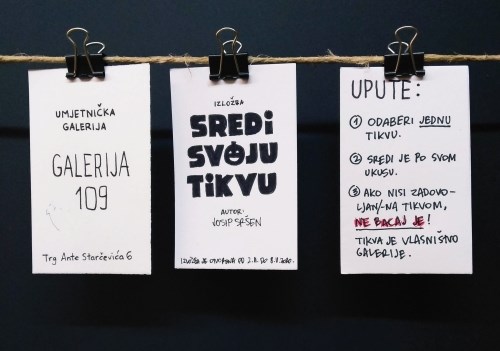 UMJETNIČKA
GALERIJA
GALERIJA
109
Trg Ante Starčevića 6
IZLOŽBA
SREDi
SVOJU
TiKVU
AUTOR:
JOSIP SRŠEN
IZLOŽBA JE OTVORENA OD 2.11. DO 8.11.
UPUTE:
① ODABERI JEDNU
TIKVU.
② SREDI JE PO SVOM
UKUSU.
③ AKO NISI ZADOVO-
LJAN/-NA TIKVOM,
NE BACAJ JE!
TIKVA JE VLASNIŠTVO
GALERIJE.